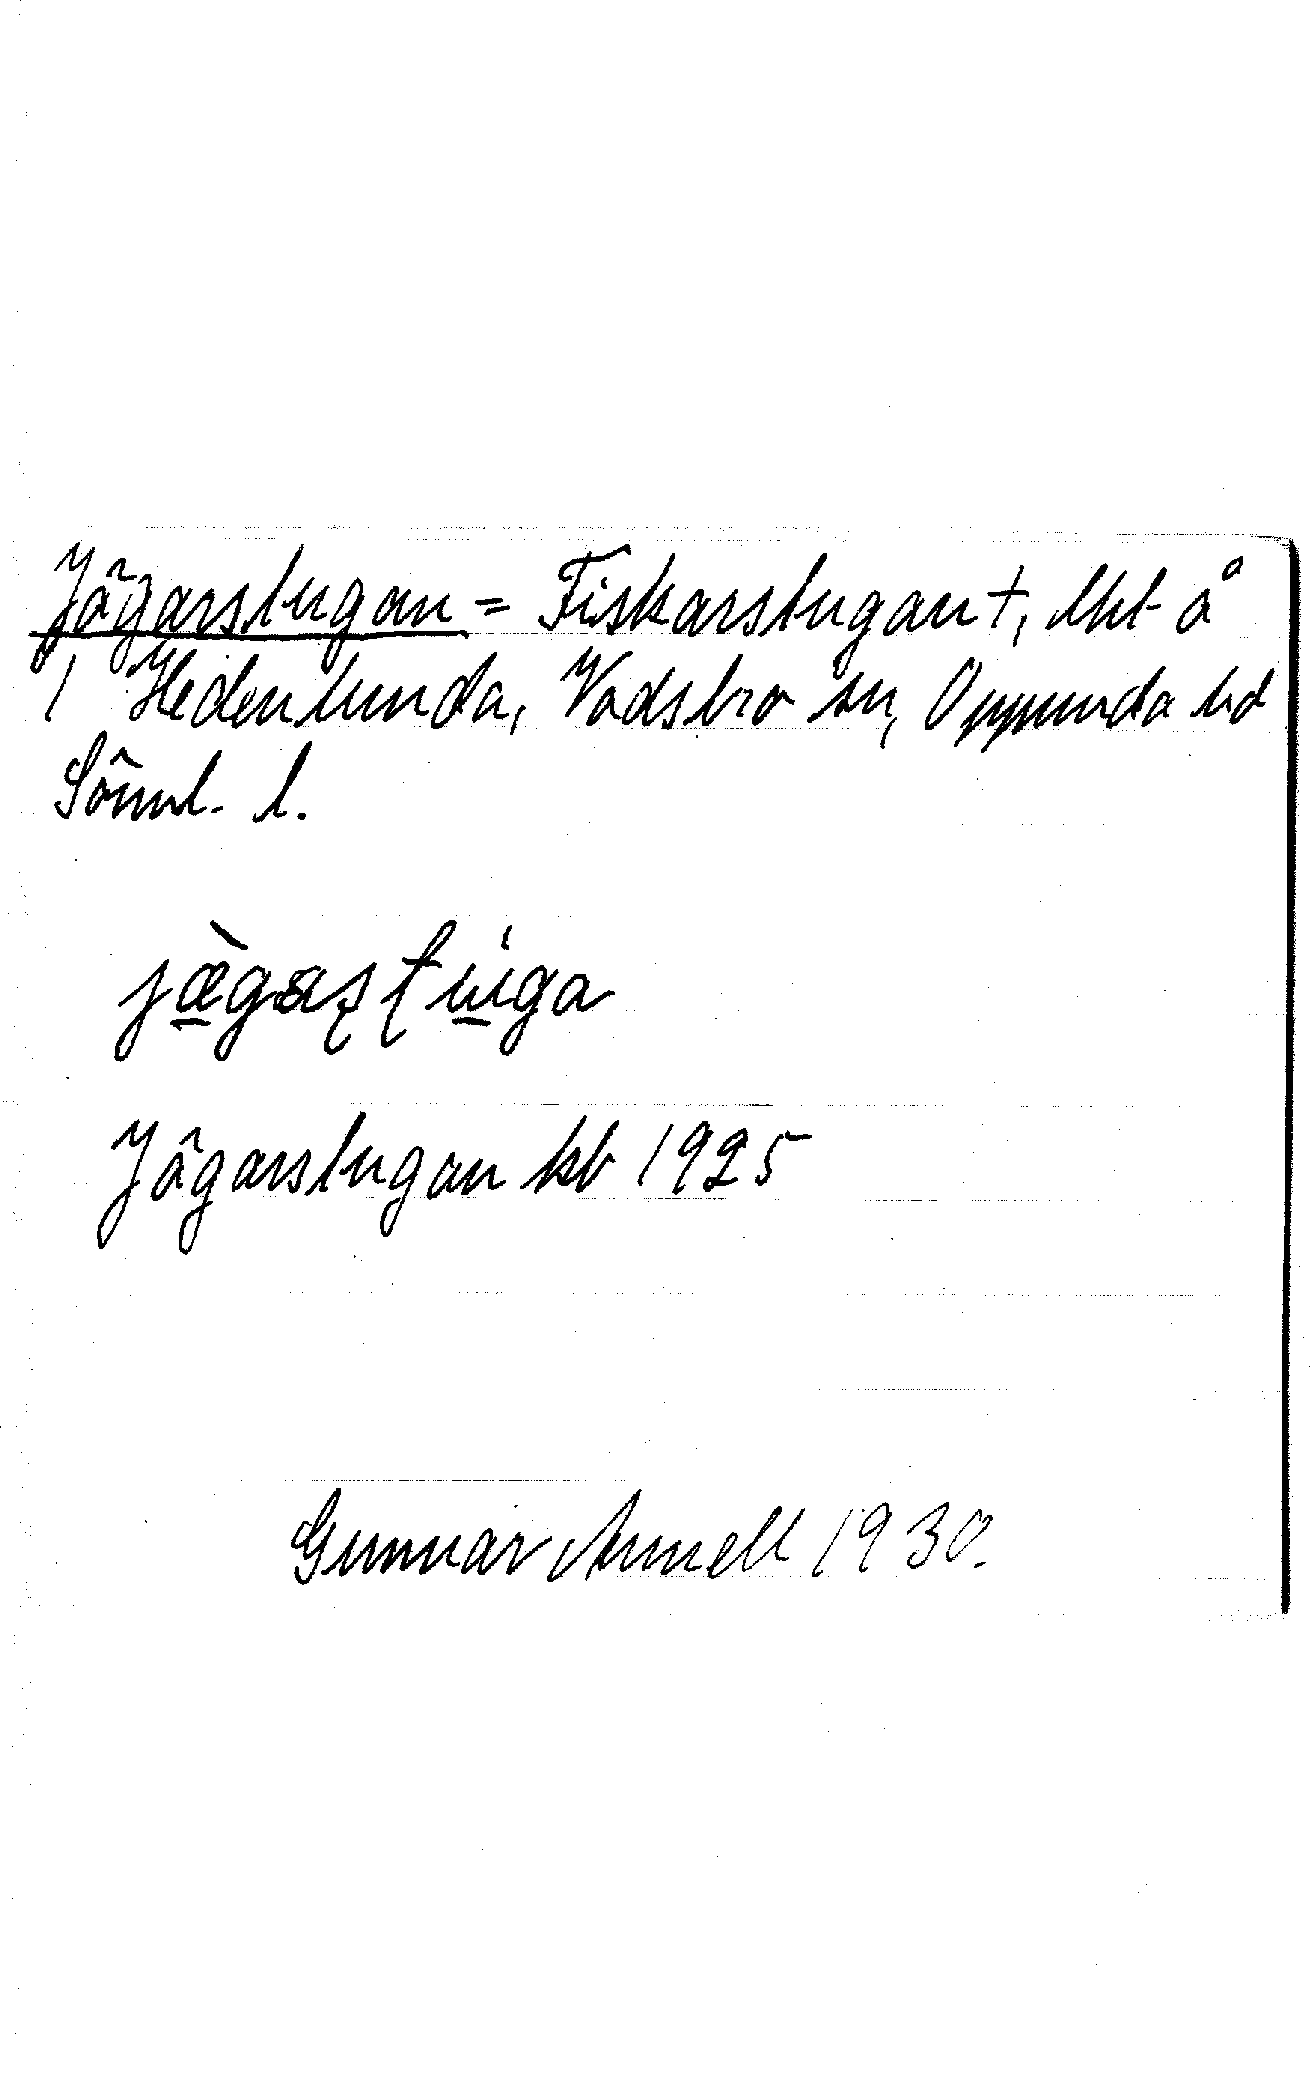 Jägarstugan = Fiskarstugan †, lht å
1 Hedenlunda, Vadsbro sn, Oppunda hd
Söml. l.
jæ̀gaʂʈúga
Jägarstugan kb 1925
Gunnar Annell 1930.